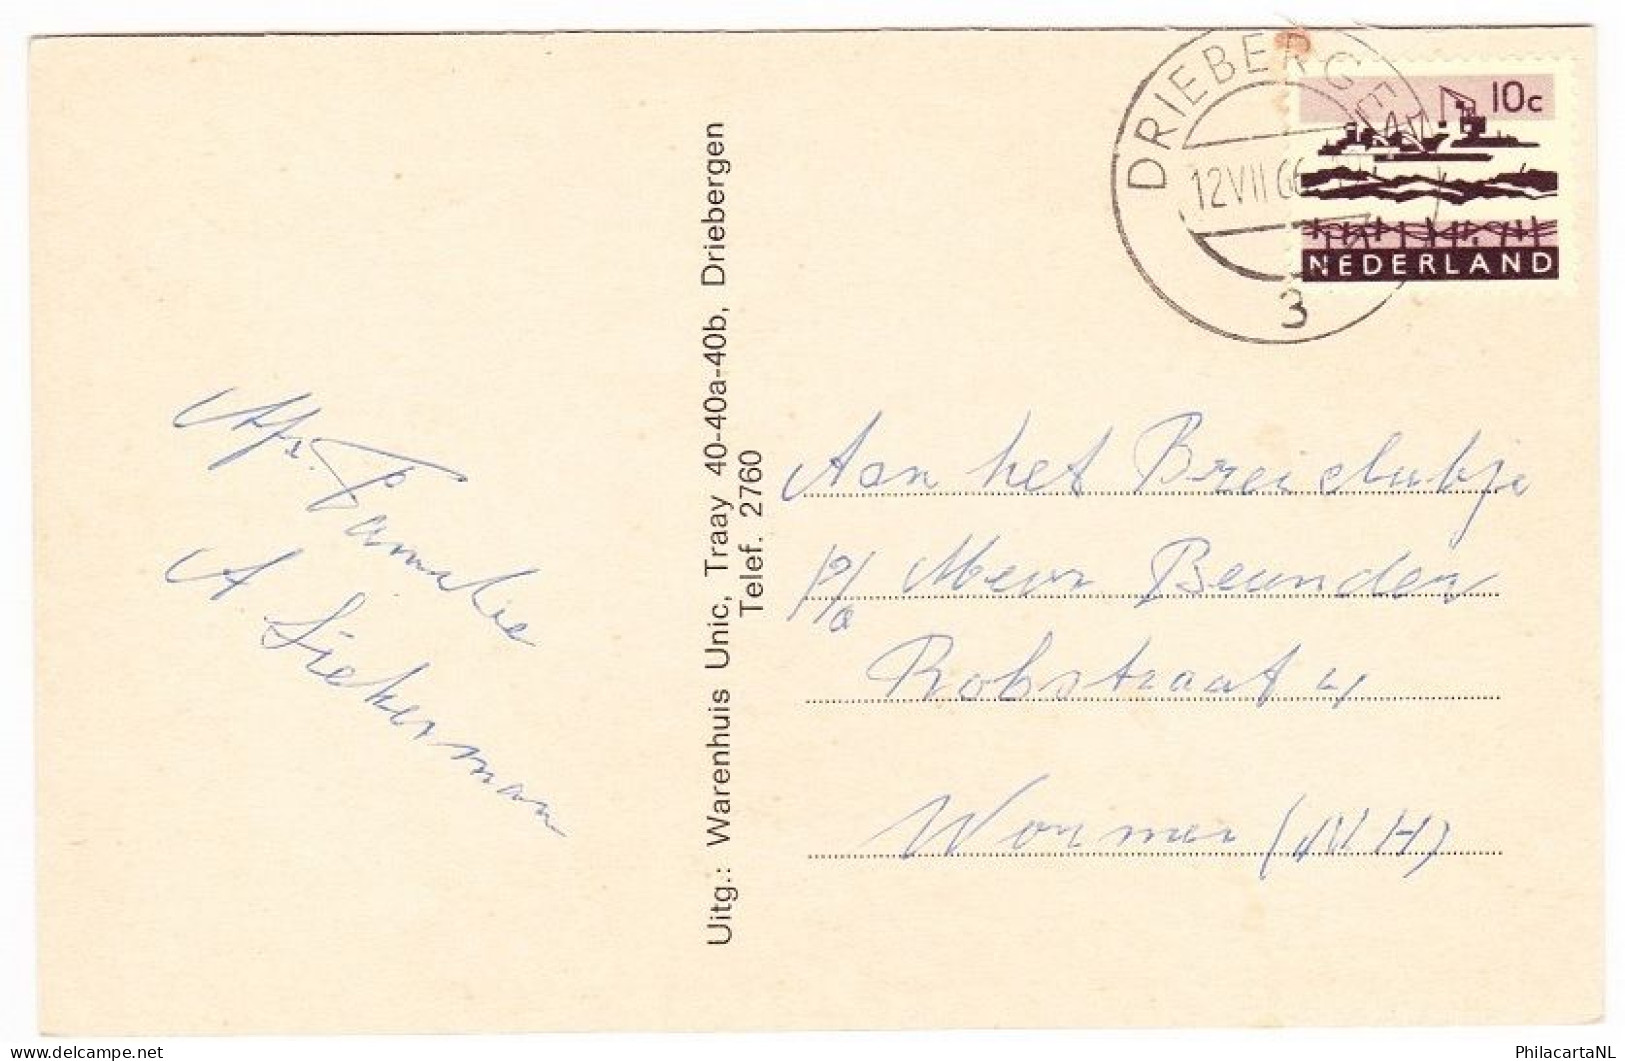 DRIEBERGEN
12 VII 66
3
10c
NEDERLAND
Afz. Familie
A Siekerman
Uitg.: Warenhuis Unic, Traay 40-40a-40b, Driebergen
Telef. 2760
Aan het Breiclubje
p/a Mevr Beunder
Robstraat 4
Wormer (N H)
PhilacartaNL